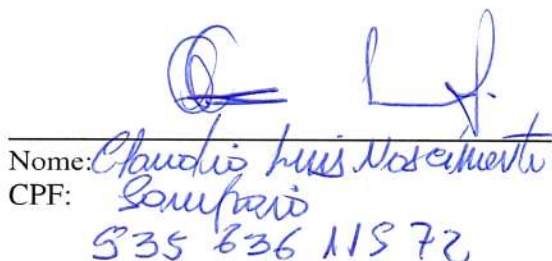 Nome: Claudio Luis Nascimento
CPF: Sampaio
535 636 115 72